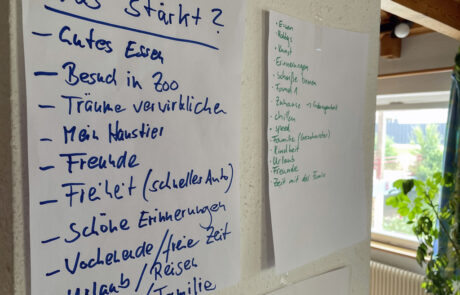 Was stärkt?
– Gutes Essen
– Besuch in Zoo
– Träume verwirklichen
– Mein Haustier
– Freunde
– Freiheit (schnelles Auto)
– Schöne Erinnerungen
– Wochenende/freie Zeit
– Urlaub/Reisen
/Familie
· Essen
· Hobbys
· Kunst
· Erinnerungen
· Formel 1
· Zuhause → Geborgenheit
· chillen
· Familie (Geschwister)
· Kindheit
· Urlaub
· Freunde
· Zeit mit der Familie